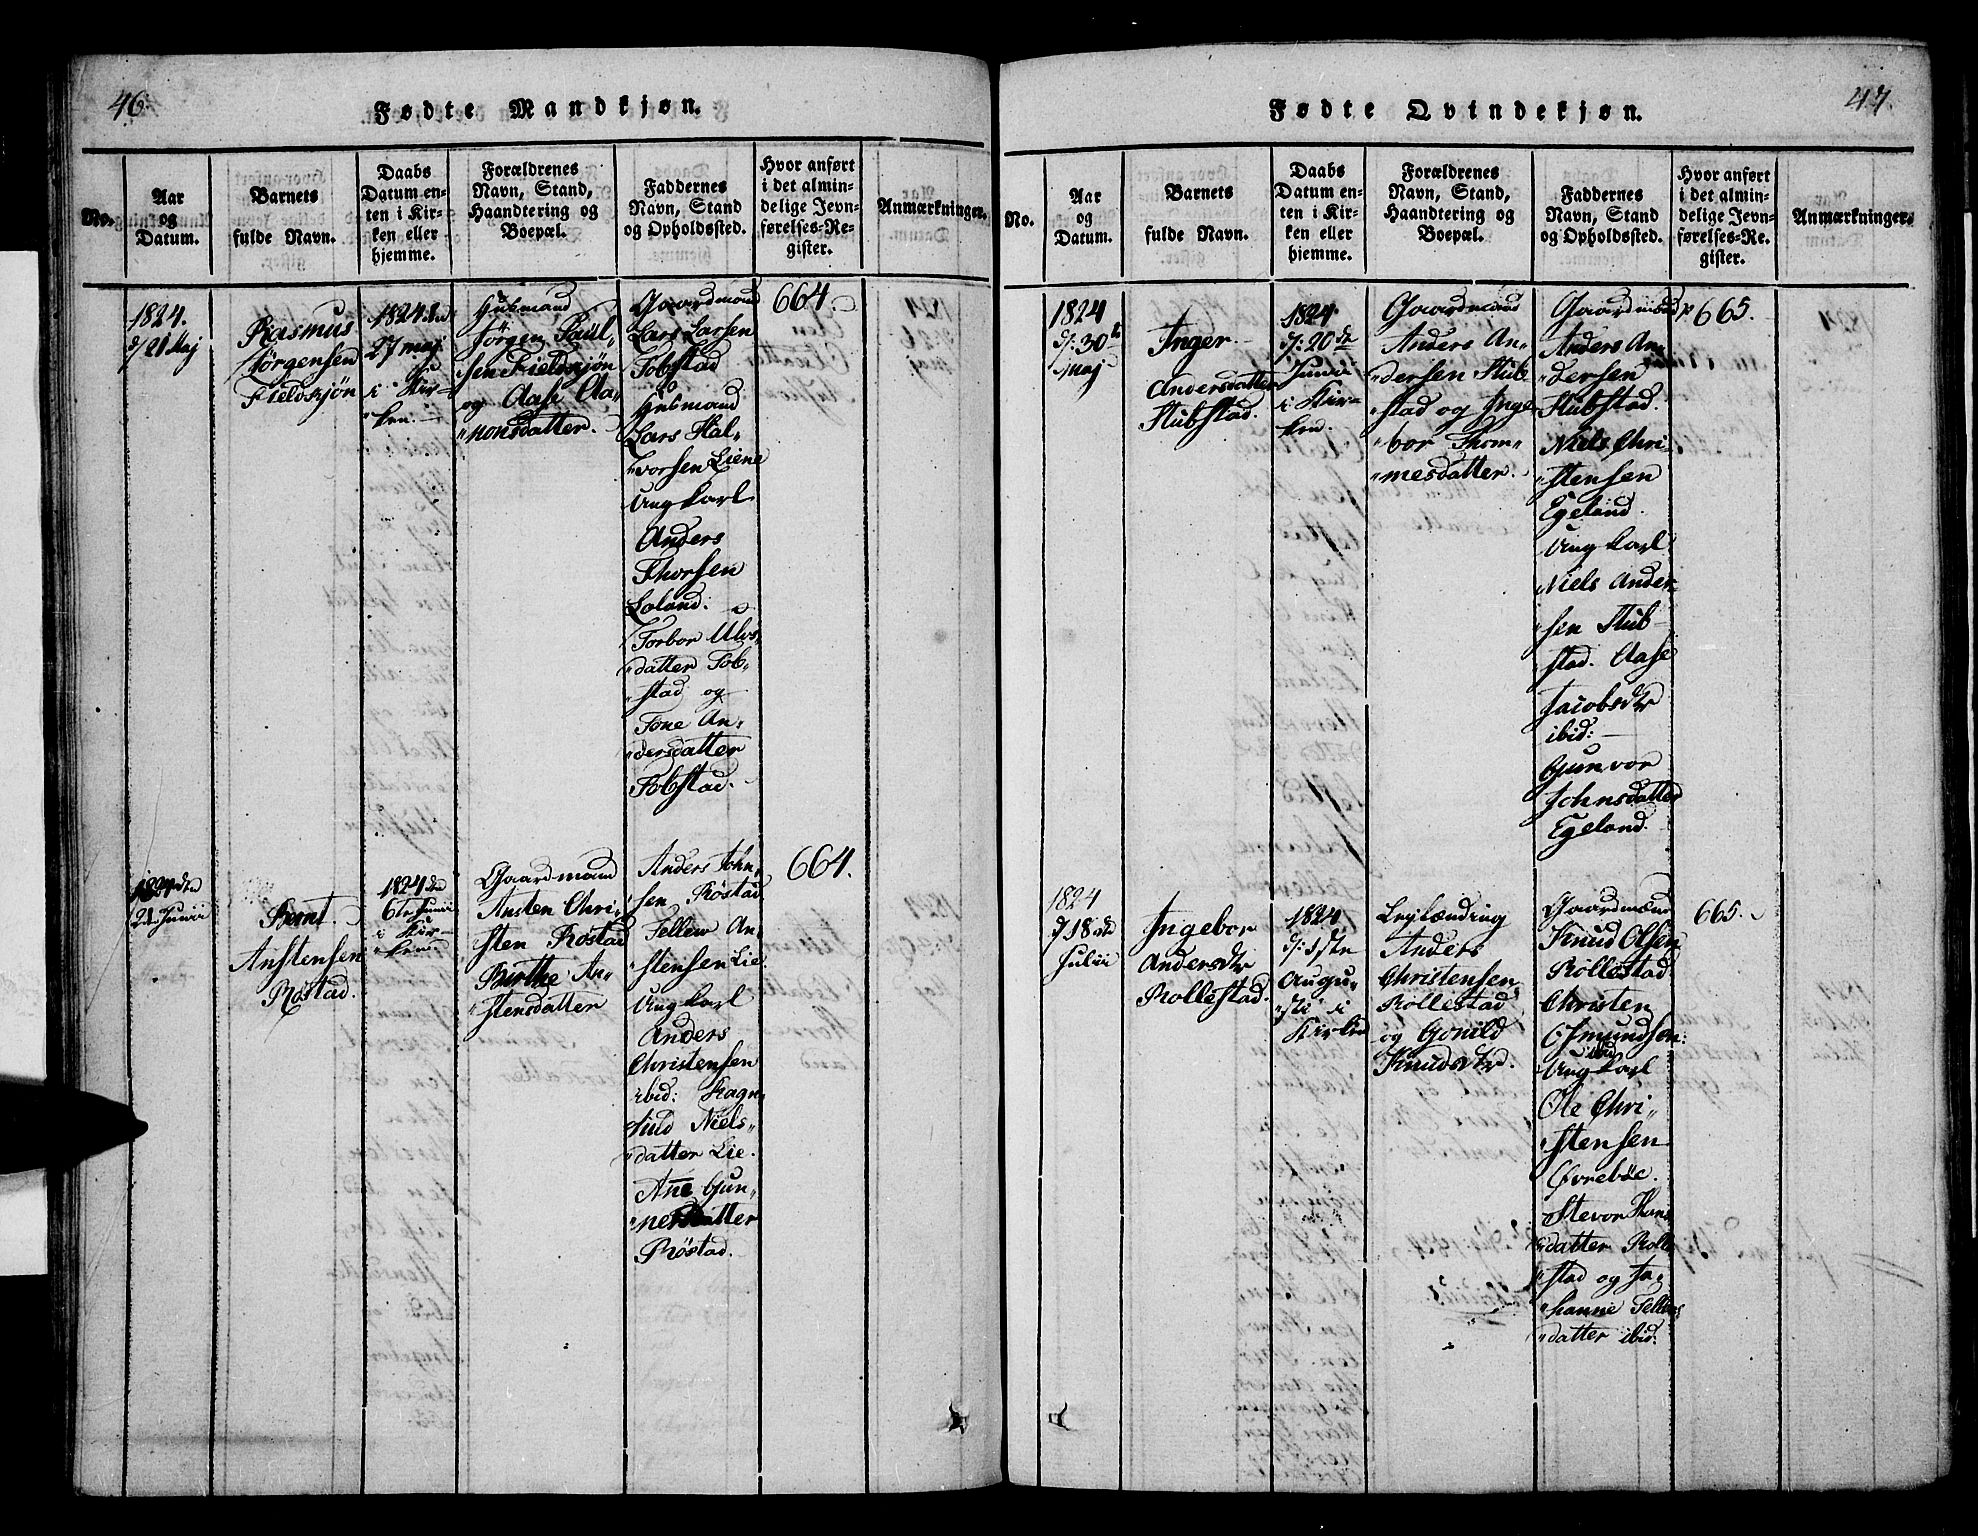 46.
Fødte Mandkjøn.
No.
Aar
og
Datum.
Barnets
fulde Navn.
Daabs
Datum en-
ten i Kir-
ken eller
hjemme.
Forældrenes
Navn, Stand,
Haandtering og
Boepæl.
Faddernes
Navn, Stand
og Opholdssted.
Hvor anført
i det almin-
delige Jevn-
førelses-Re-
gister.
Anmærkninger.
1824.
d/ 21 Maj
Rasmus
Jørgensen
Fieldskjøn
1824 den
27 maj
i Kir-
ken.
Huusmand
Jørgen Paul-
sen Fieldskjøn
og Aase Aa-
monsdatter.
Gaardmand
Lars Larsen
Fobstad
Husmand
Lars Hal-
vorsen Liene
Ung karl
Anders
Thorsen
Loland.
Torbor Ulvs-
datter Fob-
stad og
Tone An-
dersdatter
Fobstad.
664.
1824 dtn
21 Junii
Bernt
Anstensen
Røstad.
1824 den
6te Junii
i Kir-
ken
Gaardmand
Ansten Chri-
sten Røstad
Birthe An-
stensdatter
Anders John-
sen Røstad
Tellew An-
stensen Lie
Ung karl
Anders
Christensen
ibid: Ragn-
hild Niels-
datter Lie.
Ane Gun-
nersdatter
Røstad.
664.
47.
Fødte Qvindekjøn.
No.
Aar
og
Datum.
Barnets
fulde Navn.
Daabs
Datum en-
ten i Kir-
ken eller
hjemme.
Forældrenes
Navn, Stand,
Haandtering og
Boepæl.
Faddernes
Navn, Stand
og Opholdssted.
Hvor anført
i det almin-
delige Jevn-
førelses-Re-
gister.
Anmærkninger.
1824
d/: 30te
Maj
Inger
Andersdatter
Stubstad.
1824.
d/: 20de
Junii
i Kir-
ken.
Gaardmand
Anders An-
dersen Stub
stad og Inge
bor Thom-
mesdatter.
Gaardmænd
Anders An-
dersen
Stubstad.
Niels Chri-
stensen
Egeland.
Ung karl
Niels Ander-
sen Stub-
stad. Aase
Jacobsdtr
ibid:
Gunvor
Johnsdatter
Egeland.
665.
1824
d/ 18de
Julii
Ingebor
Andersdtr
Rollestad.
1824.
d/: 1ste
Augu-
sti i
Kirken
Leylænding
Anders
Christensen
Rollestad
og Gonild
Knudsdtr.
Gaardmænd
Knud Olsen
Røllestad
Christen
Osmundsen
ibid
Ung karl
Ole Chri-
stensen
Øvrebøe.
Stevor Hans
datter Rolle
stad og Jo-
hanne Tellefs
datter ibid:
665.